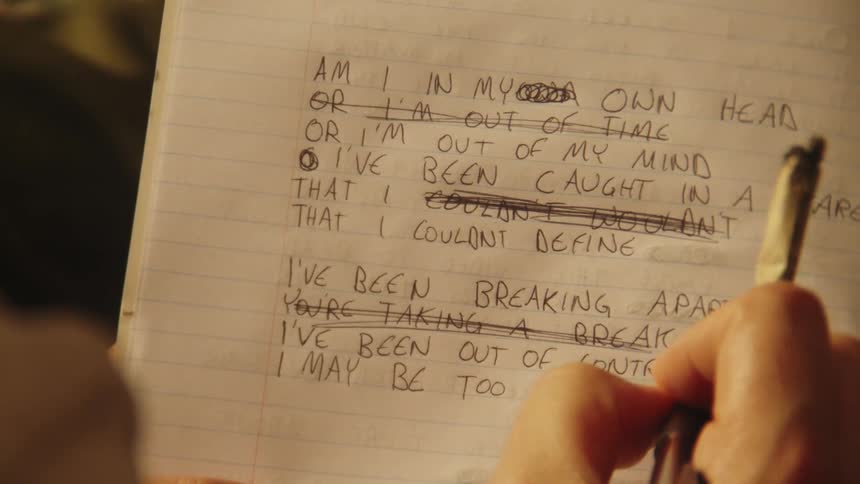 AM I IN MY OWN HEAD
OR I'M OUT OF TIME
OR I'M OUT OF MY MIND
I'VE BEEN CAUGHT IN A
THAT I COULDN'T WOULDN'T
THAT I COULDNT DEFINE
I'VE BEEN BREAKING
YOU'RE TAKING A BREAK
I'VE BEEN OUT OF
I MAY BE TOO